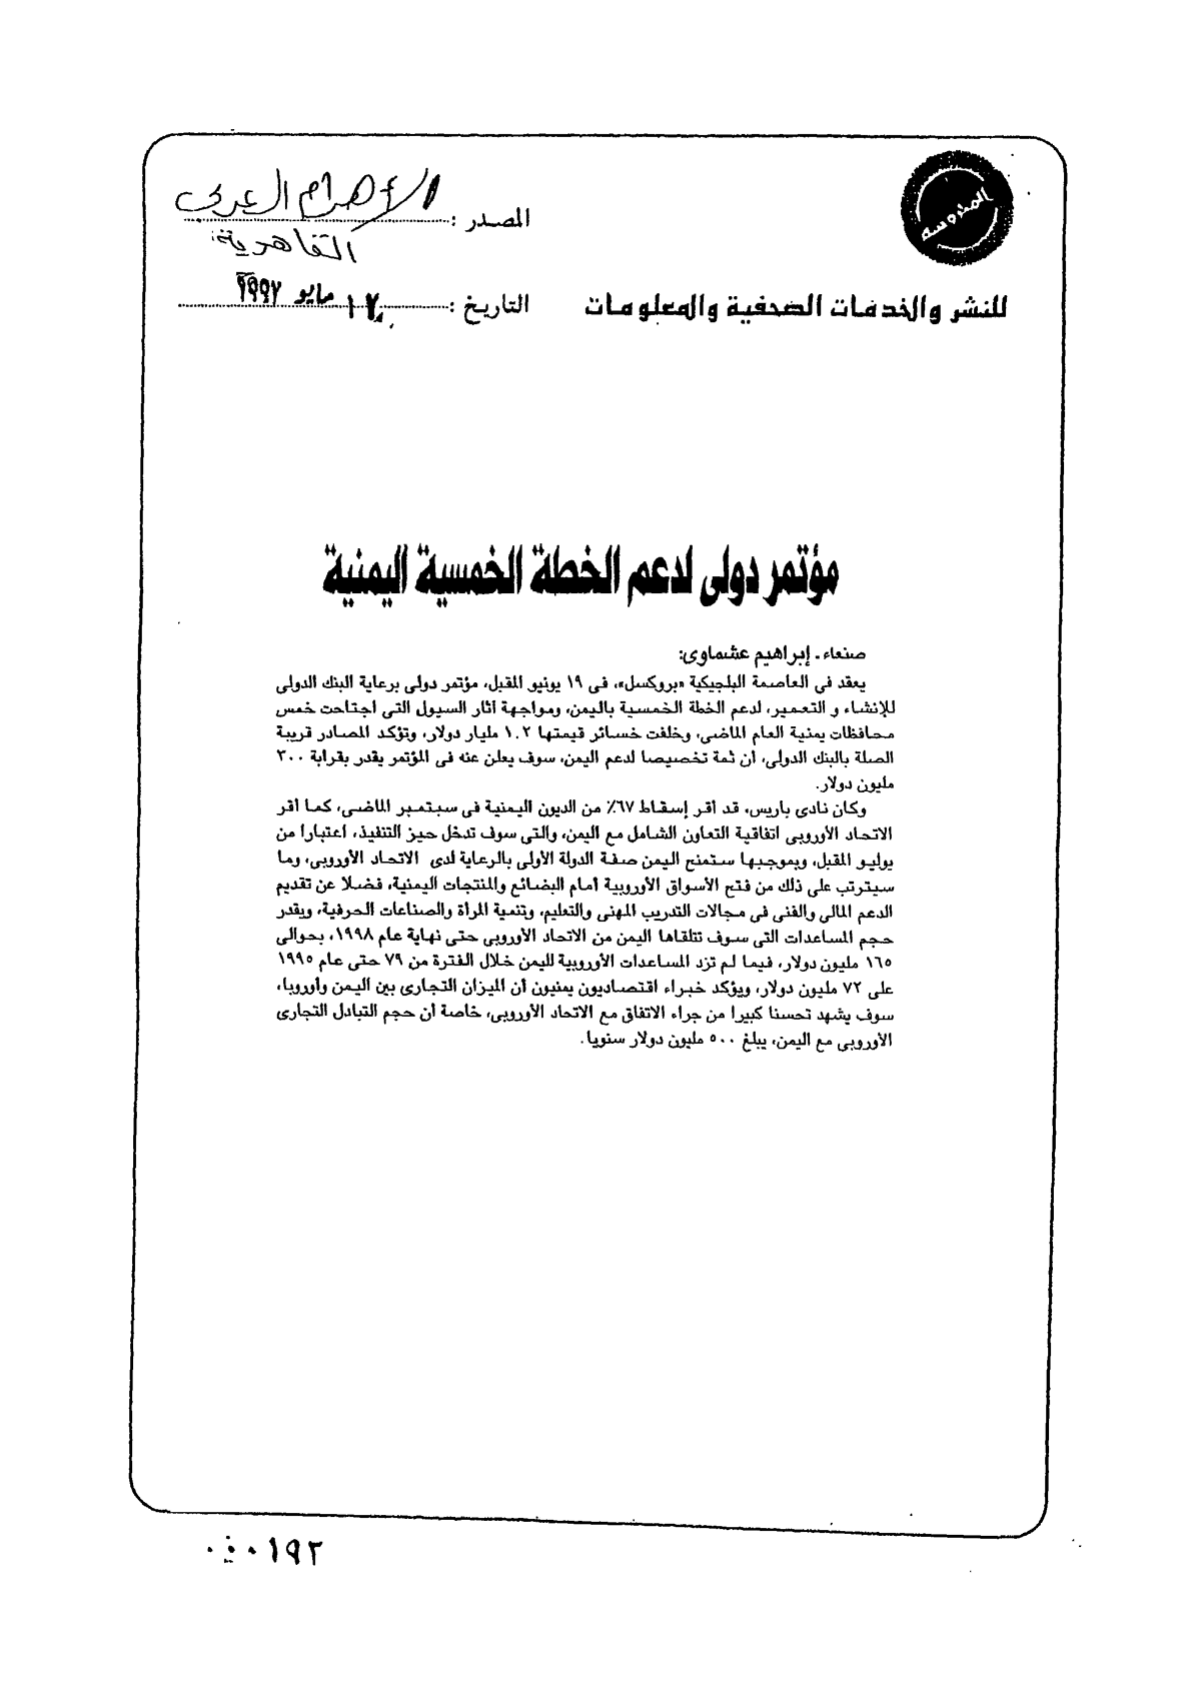 المحروسة
المصدر : الأهرام العربى
القاهرية
للنشر والخدمات الصحفية والمعلومات
التاريخ : ١٧ مايو ١٩٩٧
مؤتمر دولى لدعم الخطة الخمسية اليمنية
صنعاء ـ إبراهيم عشماوى:
يعقد فى العاصمة البلجيكية «بروكسل»، فى ١٩ يونيو المقبل، مؤتمر دولى برعاية البنك الدولى
للإنشاء و التعمير، لدعم الخطة الخمسية باليمن، ومواجهة آثار السيول التى اجتاحت خمس
محافظات يمنية العام الماضى، وخلفت خسائر قيمتها ١.٢ مليار دولار، وتؤكد المصادر قريبة
الصلة بالبنك الدولى، أن ثمة تخصيصا لدعم اليمن، سوف يعلن عنه فى المؤتمر يقدر بقرابة ٣٠٠
مليون دولار.
وكان نادى باريس، قد أقر إسقاط ٦٧٪ من الديون اليمنية فى سبتمبر الماضى، كما أقر
الاتحاد الأوروبى اتفاقية التعاون الشامل مع اليمن، والتى سوف تدخل حيز التنفيذ، اعتبارا من
يوليو المقبل، وبموجبها ستمنح اليمن صفة الدولة الأولى بالرعاية لدى الاتحاد الأوروبى، وما
سيترتب على ذلك من فتح الأسواق الأوروبية أمام البضائع والمنتجات اليمنية، فضلا عن تقديم
الدعم المالى والفنى فى مجالات التدريب المهنى والتعليم، وتنمية المرأة والصناعات الحرفية، ويقدر
حجم المساعدات التى سوف تتلقاها اليمن من الاتحاد الأوروبى حتى نهاية عام ١٩٩٨، بحوالى
١٦٥ مليون دولار، فيما لم تزد المساعدات الأوروبية لليمن خلال الفترة من ٧٩ حتى عام ١٩٩٥
على ٧٢ مليون دولار، ويؤكد خبراء اقتصاديون يمنيون أن الميزان التجارى بين اليمن وأوروبا،
سوف يشهد تحسنا كبيرا من جراء الاتفاق مع الاتحاد الأوروبى، خاصة أن حجم التبادل التجارى
الأوروبى مع اليمن، يبلغ ٥٠٠ مليون دولار سنويا.